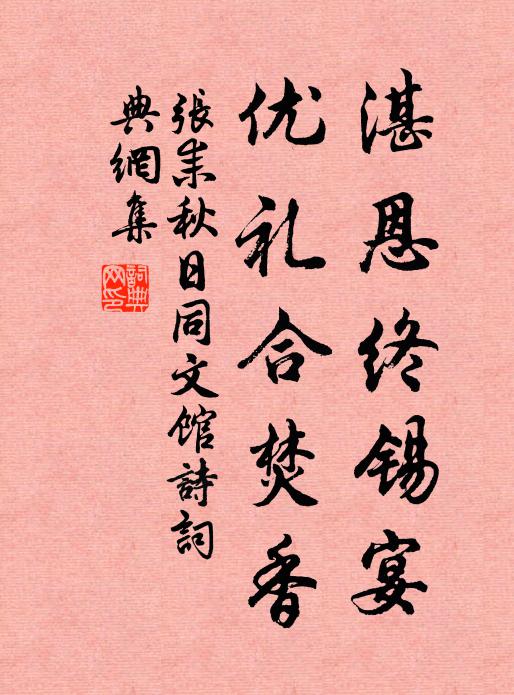 湛恩终锡宴
优礼合焚香
張耒秋日同文館詩詞
典網集
詞典網印